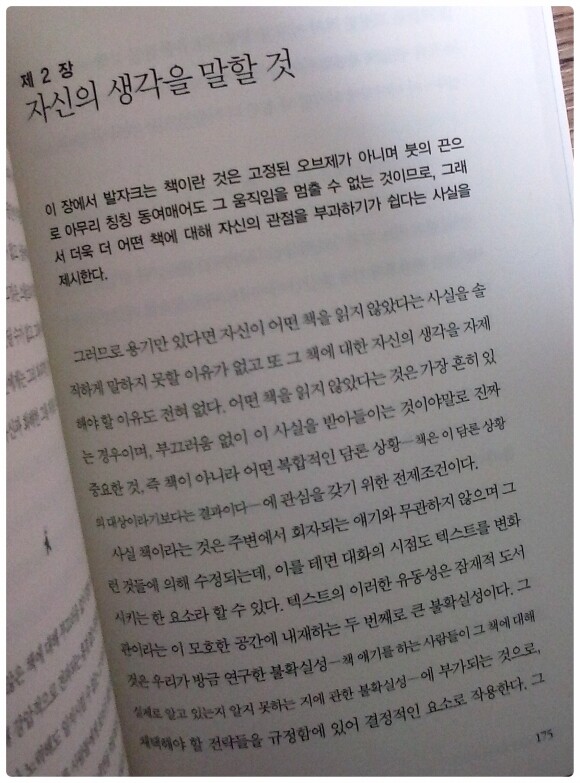 제 2 장
자신의 생각을 말할 것
이 장에서 발자크는 책이란 것은 고정된 오브제가 아니며 붓의 끈으
로 아무리 칭칭 동여매어도 그 움직임을 멈출 수 없는 것이므로, 그래
서 더욱 더 어떤 책에 대해 자신의 관점을 부과하기가 쉽다는 사실을
제시한다.
그러므로 용기만 있다면 자신이 어떤 책을 읽지 않았다는 사실을 솔
직하게 말하지 못할 이유가 없고 또 그 책에 대한 자신의 생각을 자제
해야 할 이유도 전혀 없다. 어떤 책을 읽지 않았다는 것은 가장 흔히 있
는 경우이며, 부끄러움 없이 이 사실을 받아들이는 것이야말로 진짜
중요한 것, 즉 책이 아니라 어떤 복합적인 담론 상황—책은 이 담론 상황
의 대상이라기보다는 결과이다—에 관심을 갖기 위한 전제조건이다.
사실 책이라는 것은 주변에서 회자되는 얘기와 무관하지 않으며 그
런 것들에 의해 수정되는데, 이를 테면 대화의 시점도 텍스트를 변화
시키는 한 요소라 할 수 있다. 텍스트의 이러한 유동성은 잠재적 도서
관이라는 이 모호한 공간에 내재하는 두 번째로 큰 불확실성이다. 그
것은 우리가 방금 연구한 불확실성—책 얘기를 하는 사람들이 그 책에 대해
실제로 알고 있는지 알지 못하는 지에 관한 불확실성—에 부가되는 것으로,
채택해야 할 전략들을 규정함에 있어 결정적인 요소로 작용한다. 그
175